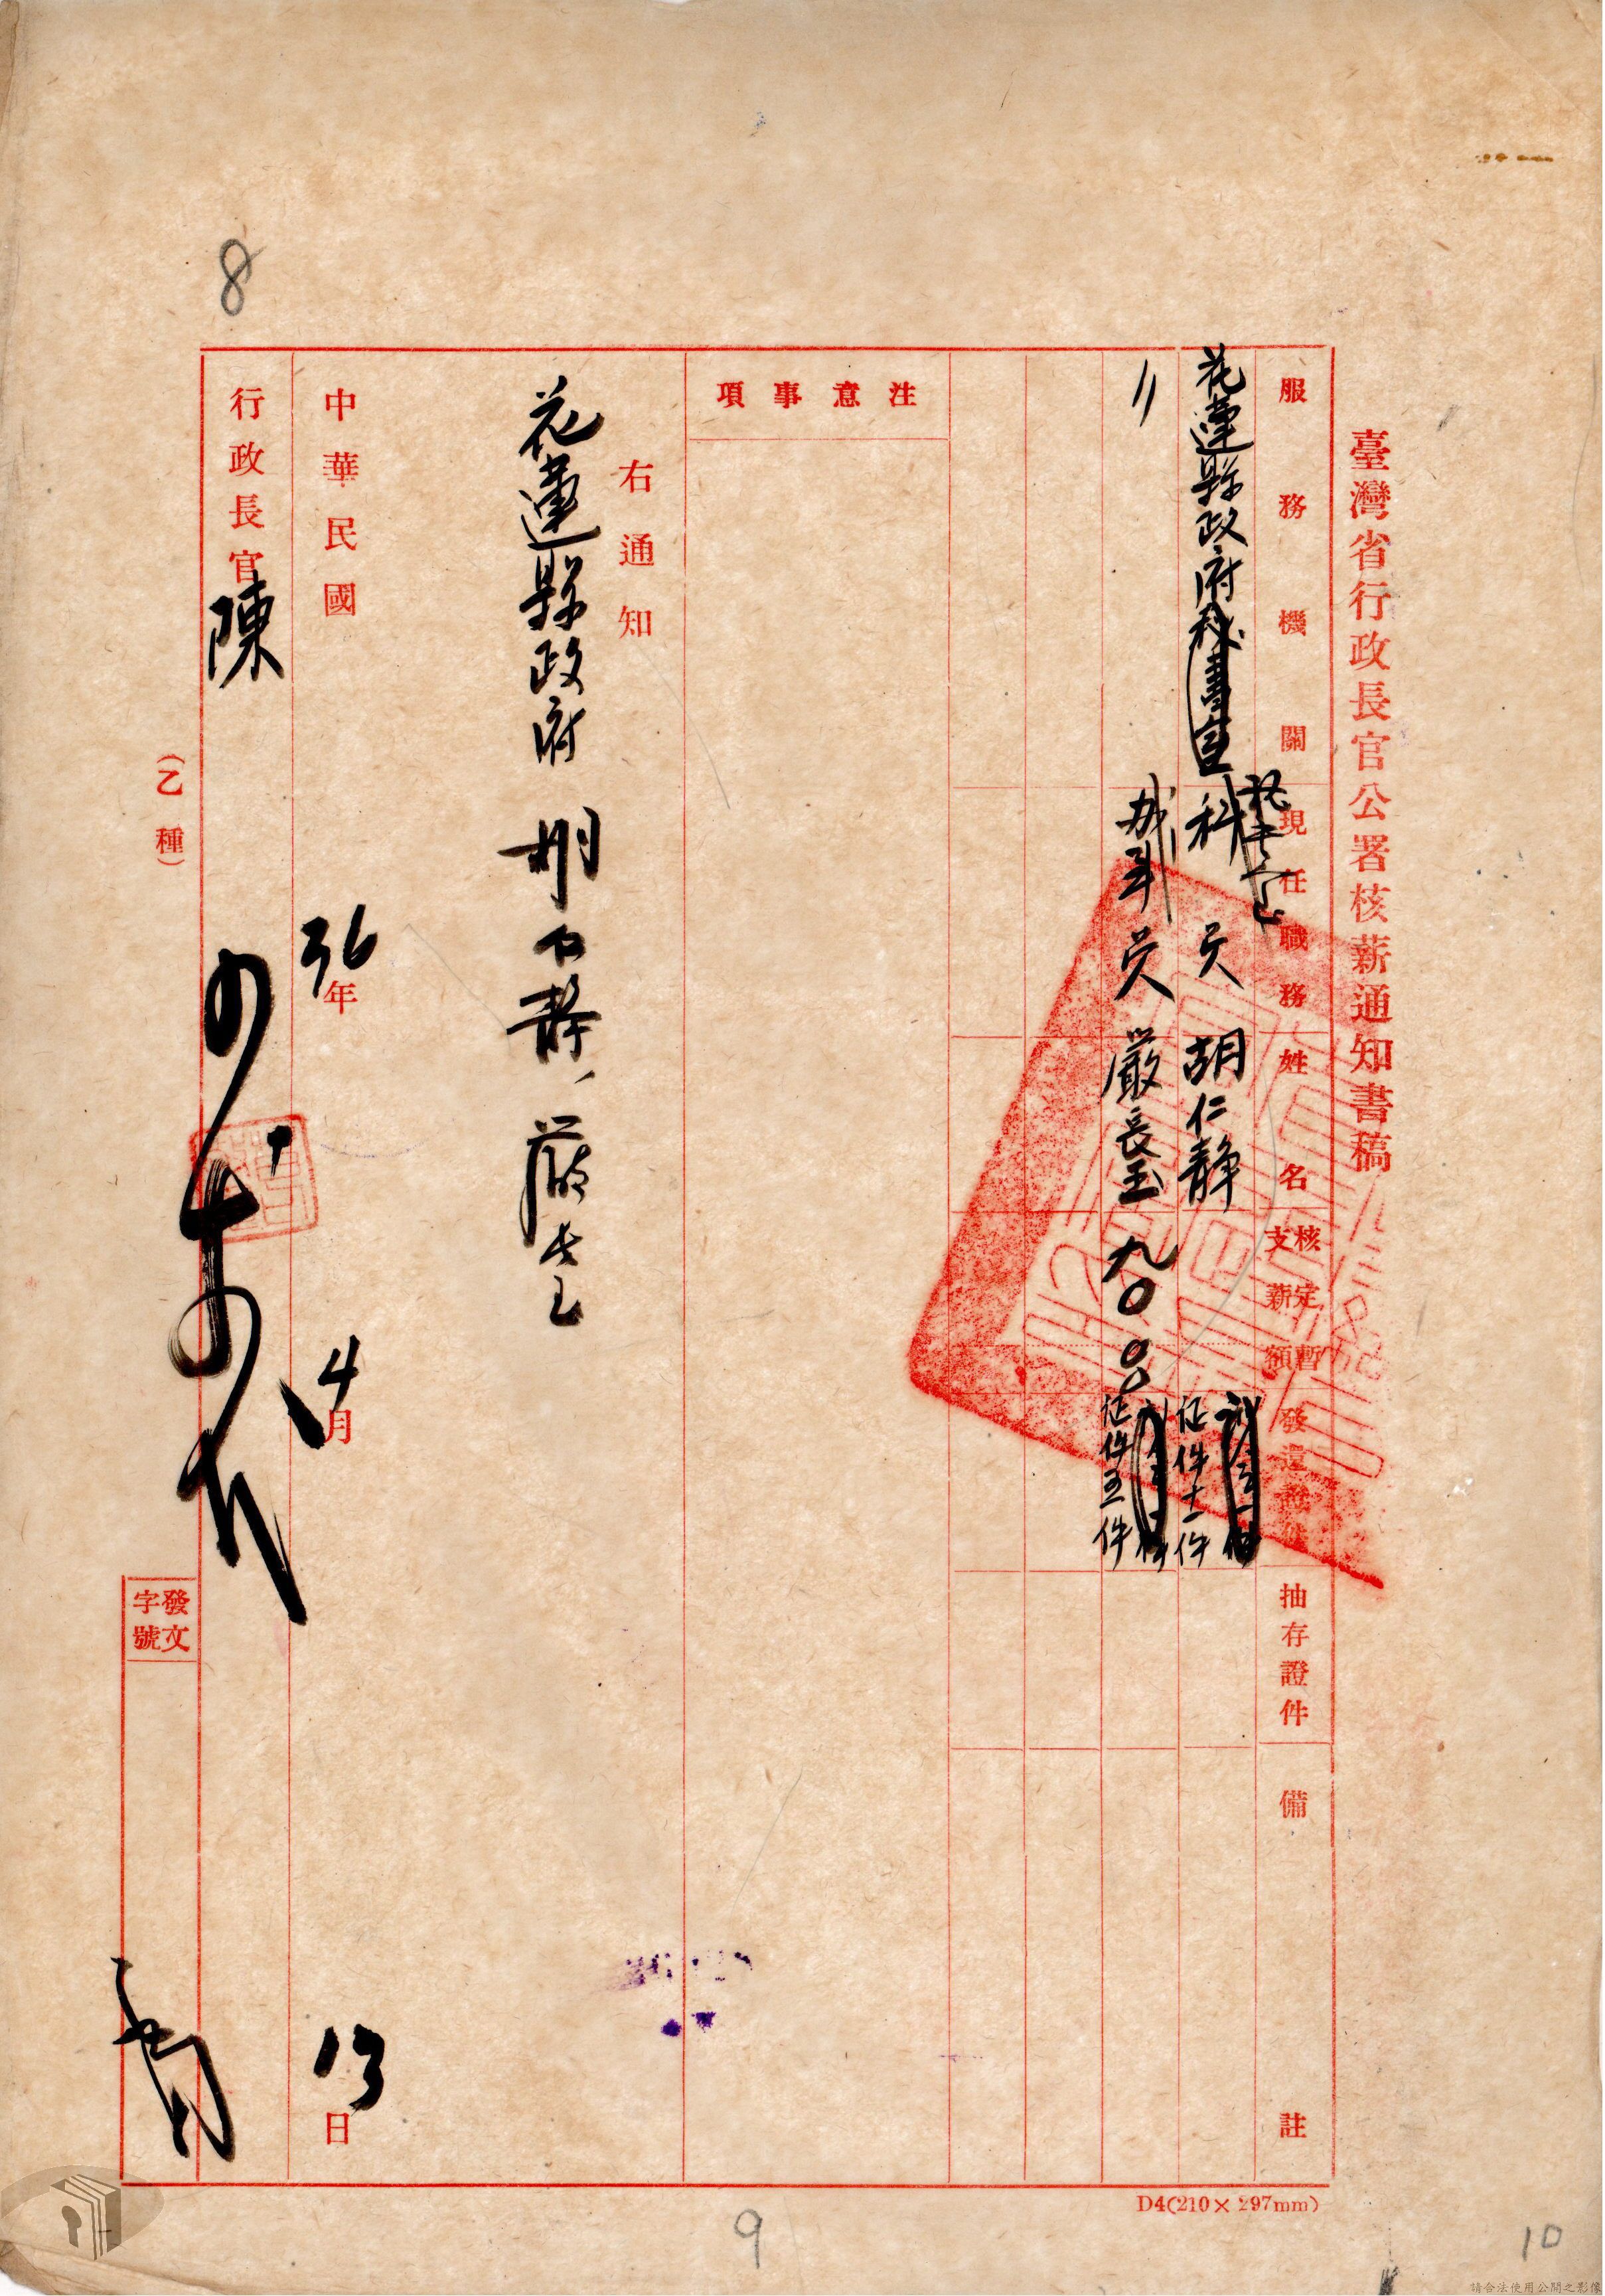 臺灣省行政長官公署核薪通知書稿
服務機關
現任職務
姓名
核定暫支薪額
發還證件
抽存證件
備註
花蓮縣政府
科員
胡仁靜
證件十一件
〃
員
嚴長玉
九〇
證件五件
注意事項
右通知
花蓮縣政府 胡仁靜、嚴長玉
中華民國36年4月13日
行政長官陳
(乙種)
發文字號
D4(210×297mm)
8
9
10
請合法使用公開之影像